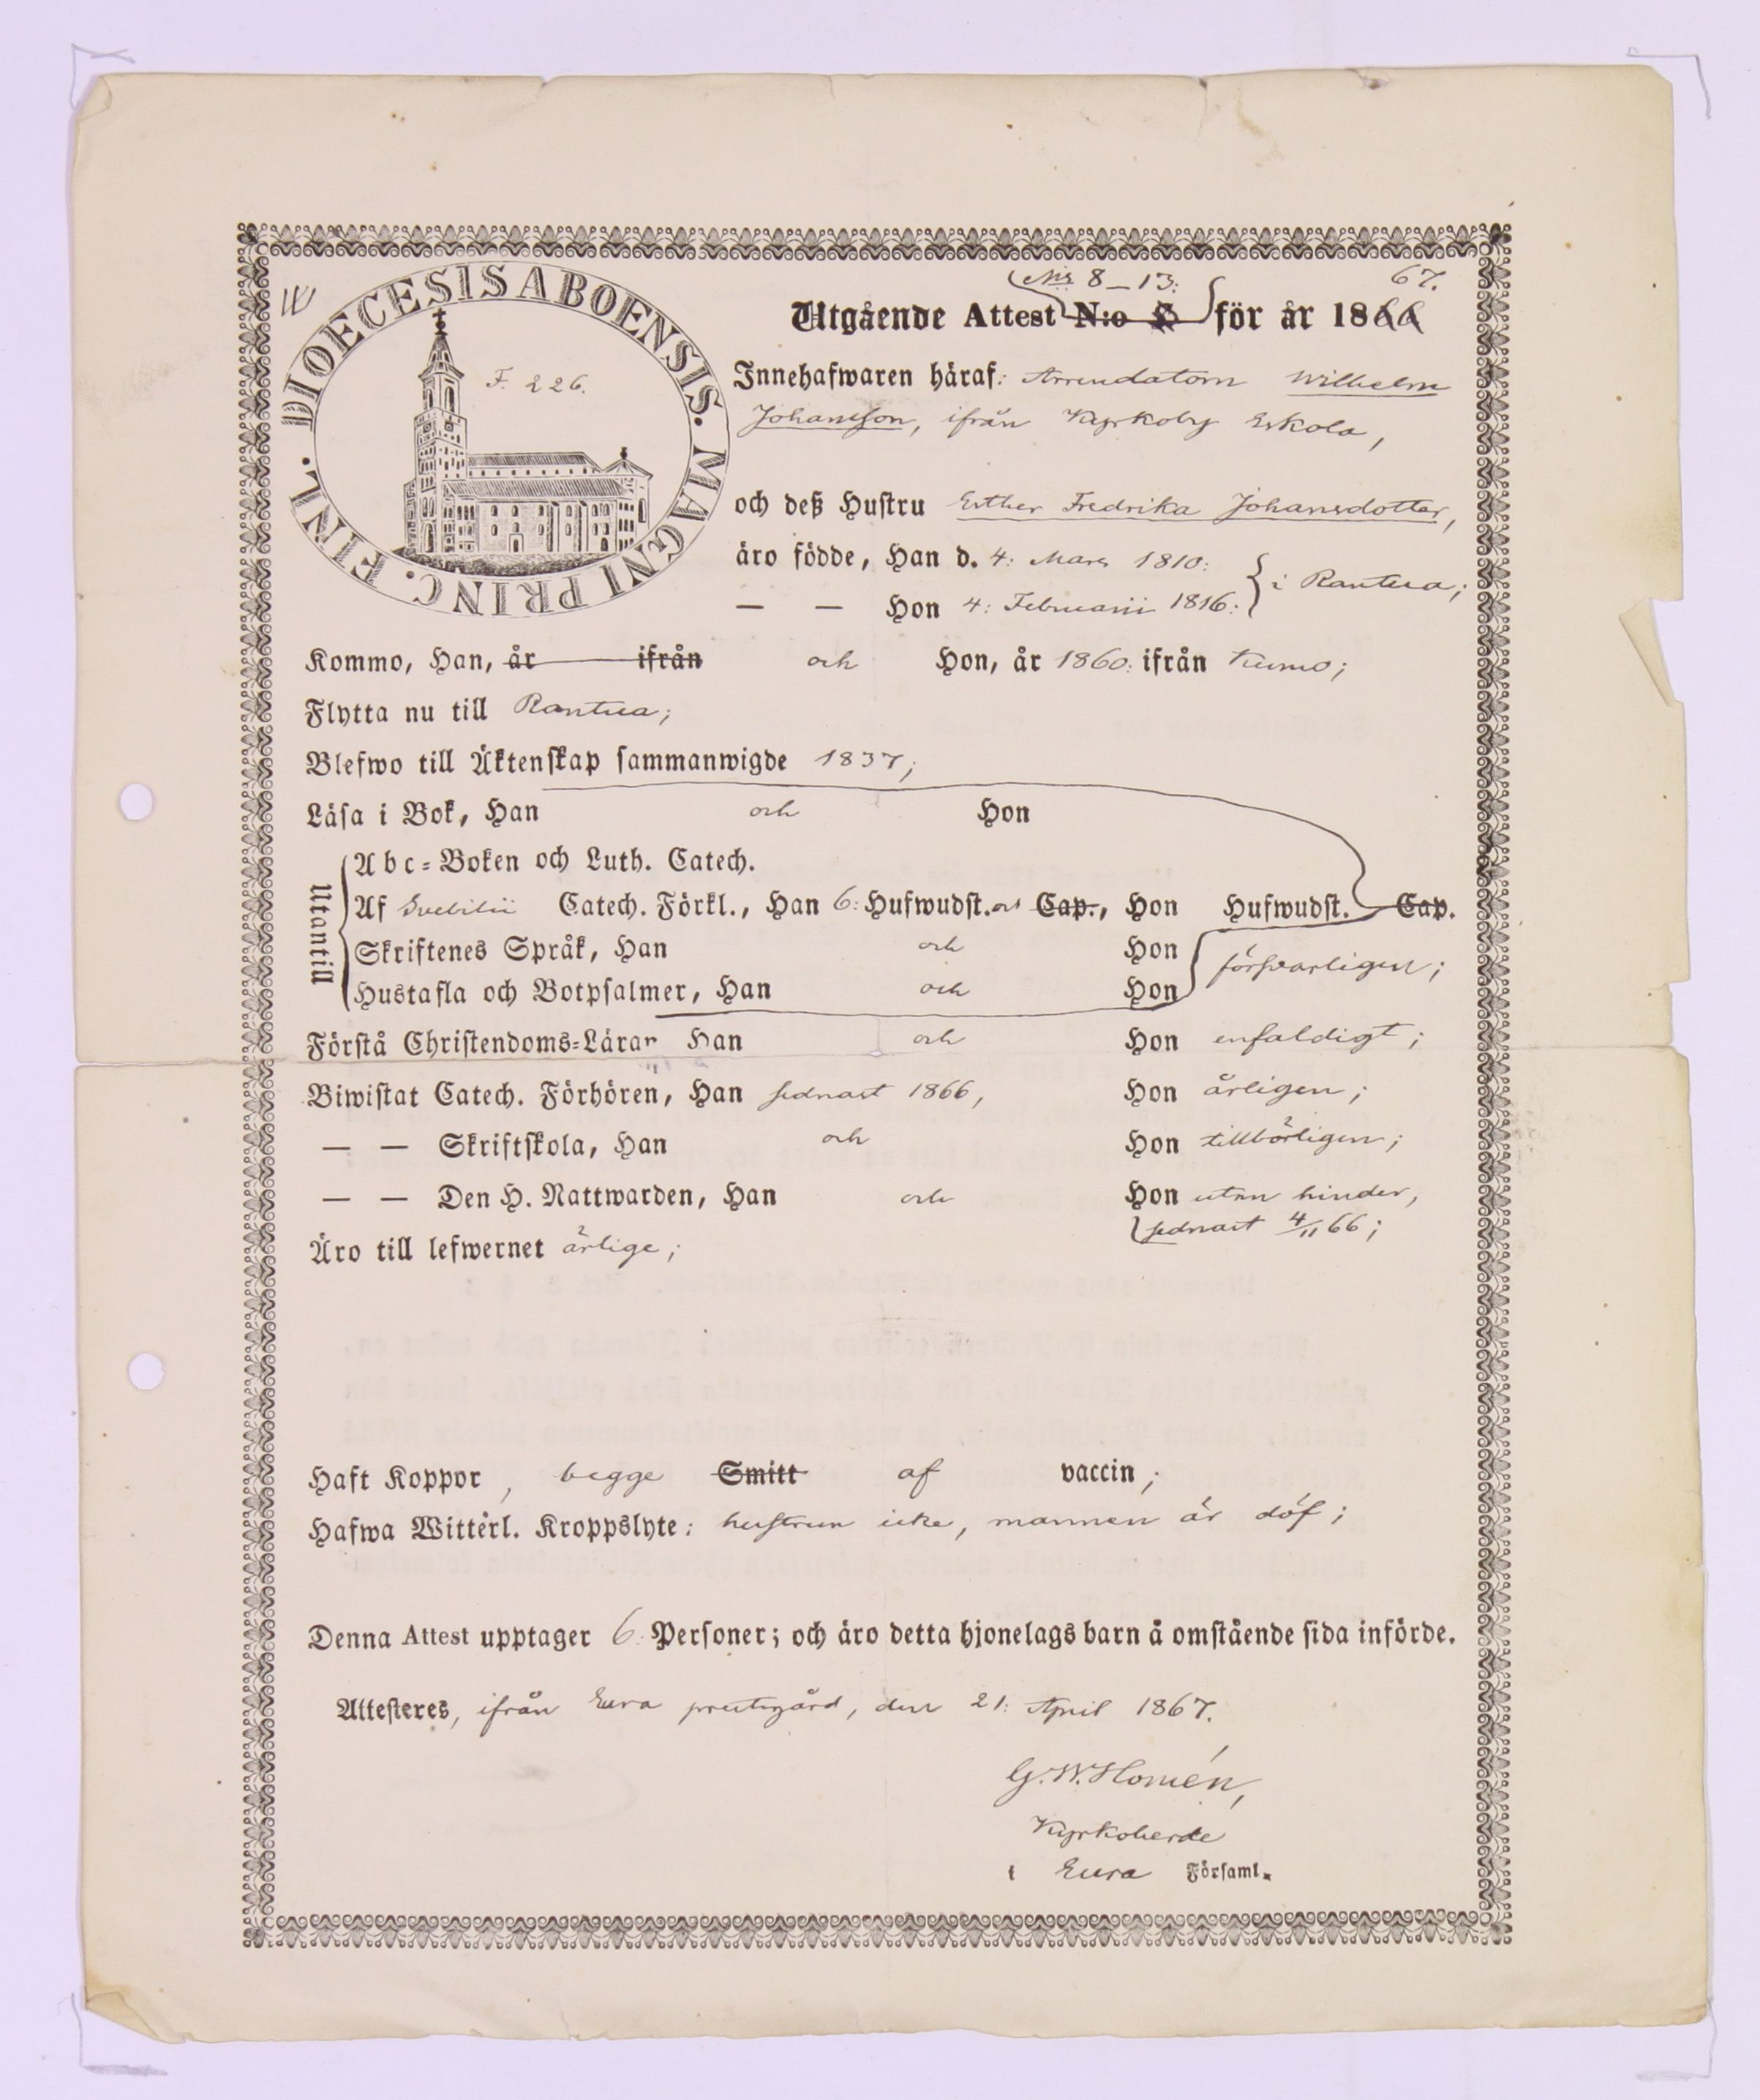 DIOECESIS ABOENSIS. MAGNI PRINC. FINL.
F. 226.
N:is 8–13:
67.
Utgående Attest N:o för år 1866
Innehafwaren häraf: Arrendatorn Wilhelm
Johansson, ifrån Kyrkoby Eskola,
och deß Hustru Esther Fredrika Johansdotter,
äro födde, Han d. 4: Mars 1810:
— — Hon 4: Februarii 1816: } i Rantua;
Kommo, Han, år ifrån och Hon, år 1860: ifrån Kumo;
Flytta nu till Rantua;
Blefwo till Äktenskap sammanwigde 1837;
Läsa i Bok, Han och Hon
Utantill
Abc-Boken och Luth. Catech.
Af Svebilii Catech. Förkl., Han 6: Hufwudst. och Cap., Hon Hufwudst. Cap.
Skriftenes Språk, Han och Hon
försvarligen;
Hustafla och Botpsalmer, Han och Hon
Förstå Christendoms-Läran Han och Hon enfaldigt;
Biwistat Catech. Förhören, Han sednast 1866, Hon årligen;
— — Skriftskola, Han och Hon tillbörligen;
— — Den H. Nattwarden, Han och Hon utan hinder,
sednast 4/11 66;
Äro till lefwernet ärlige;
Haft Koppor, begge Smitt af vaccin;
Hafwa Witterl. Kroppslyte: hustrun icke, mannen är döf;
Denna Attest upptager 6: Personer; och äro detta hjonelags barn å omstående sida införde.
Attesteres, ifrån Eura prestegård, den 21: April 1867.
G. W. Homén,
Kyrkoherde
i Eura Församl.